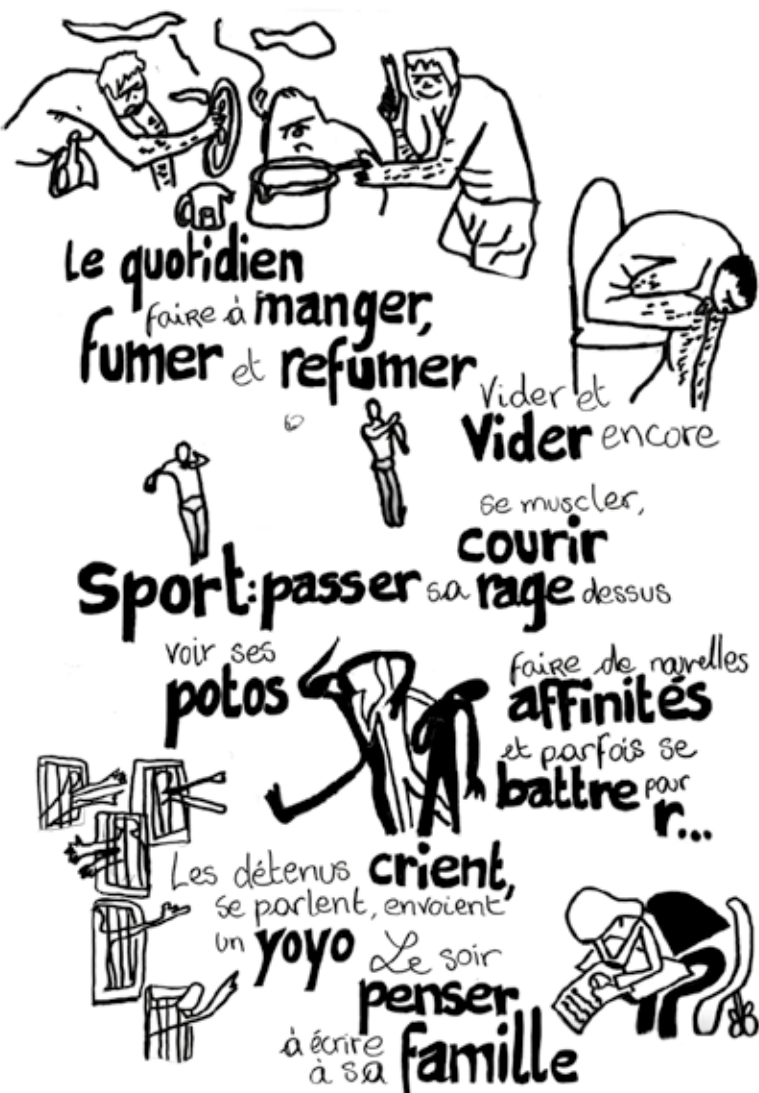 Le quotidien
faire à manger,
fumer et refumer
Vider et
Vider encore
se muscler,
courir
Sport: passer sa rage dessus
voir ses
potos
faire de nouvelles
affinités
et parfois se
battre pour
r...
Les détenus crient,
se parlent, envoient
un yoyo
Le soir
penser
à écrire
à sa famille